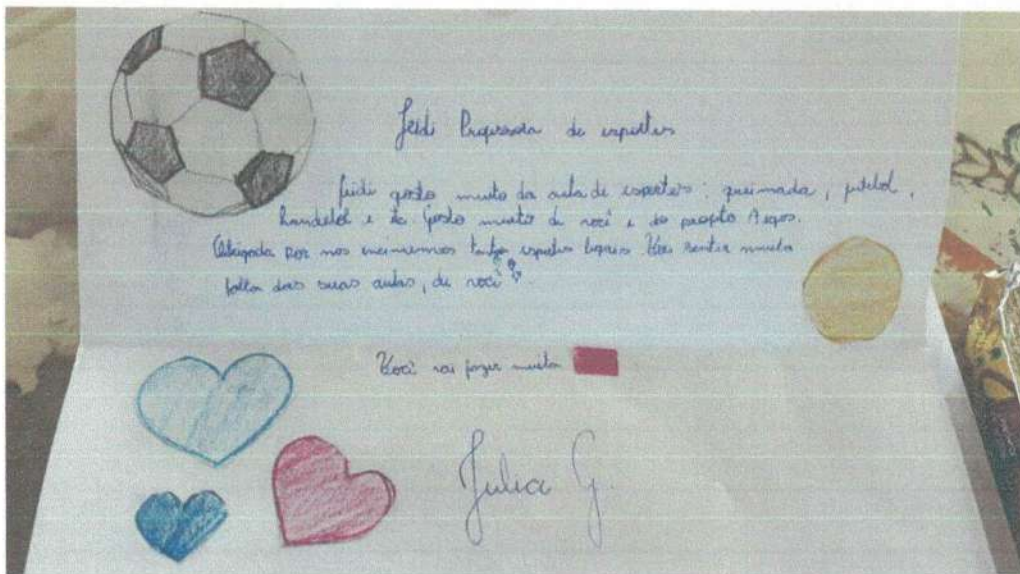 Jeidi Professora de esportes
Jeidi gosto muito da aula de esportes: queimada, futebol,
handebol e to Gosto muito de você e do projeto Argos.
Obrigada por nos tantos esportes legais Vou sentir muita
falta das suas aulas, de você
Você vai fazer muita
Julia G.